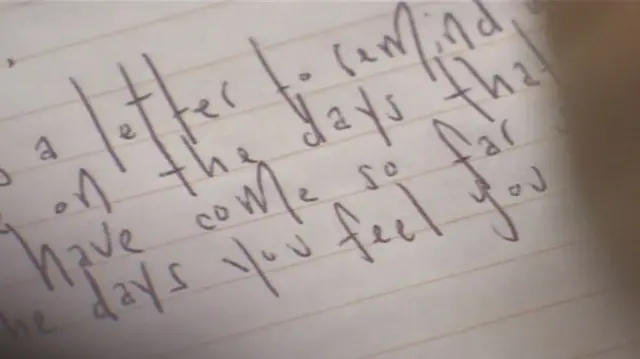 a letter to remind
on the days that
have come so far
the days you feel you